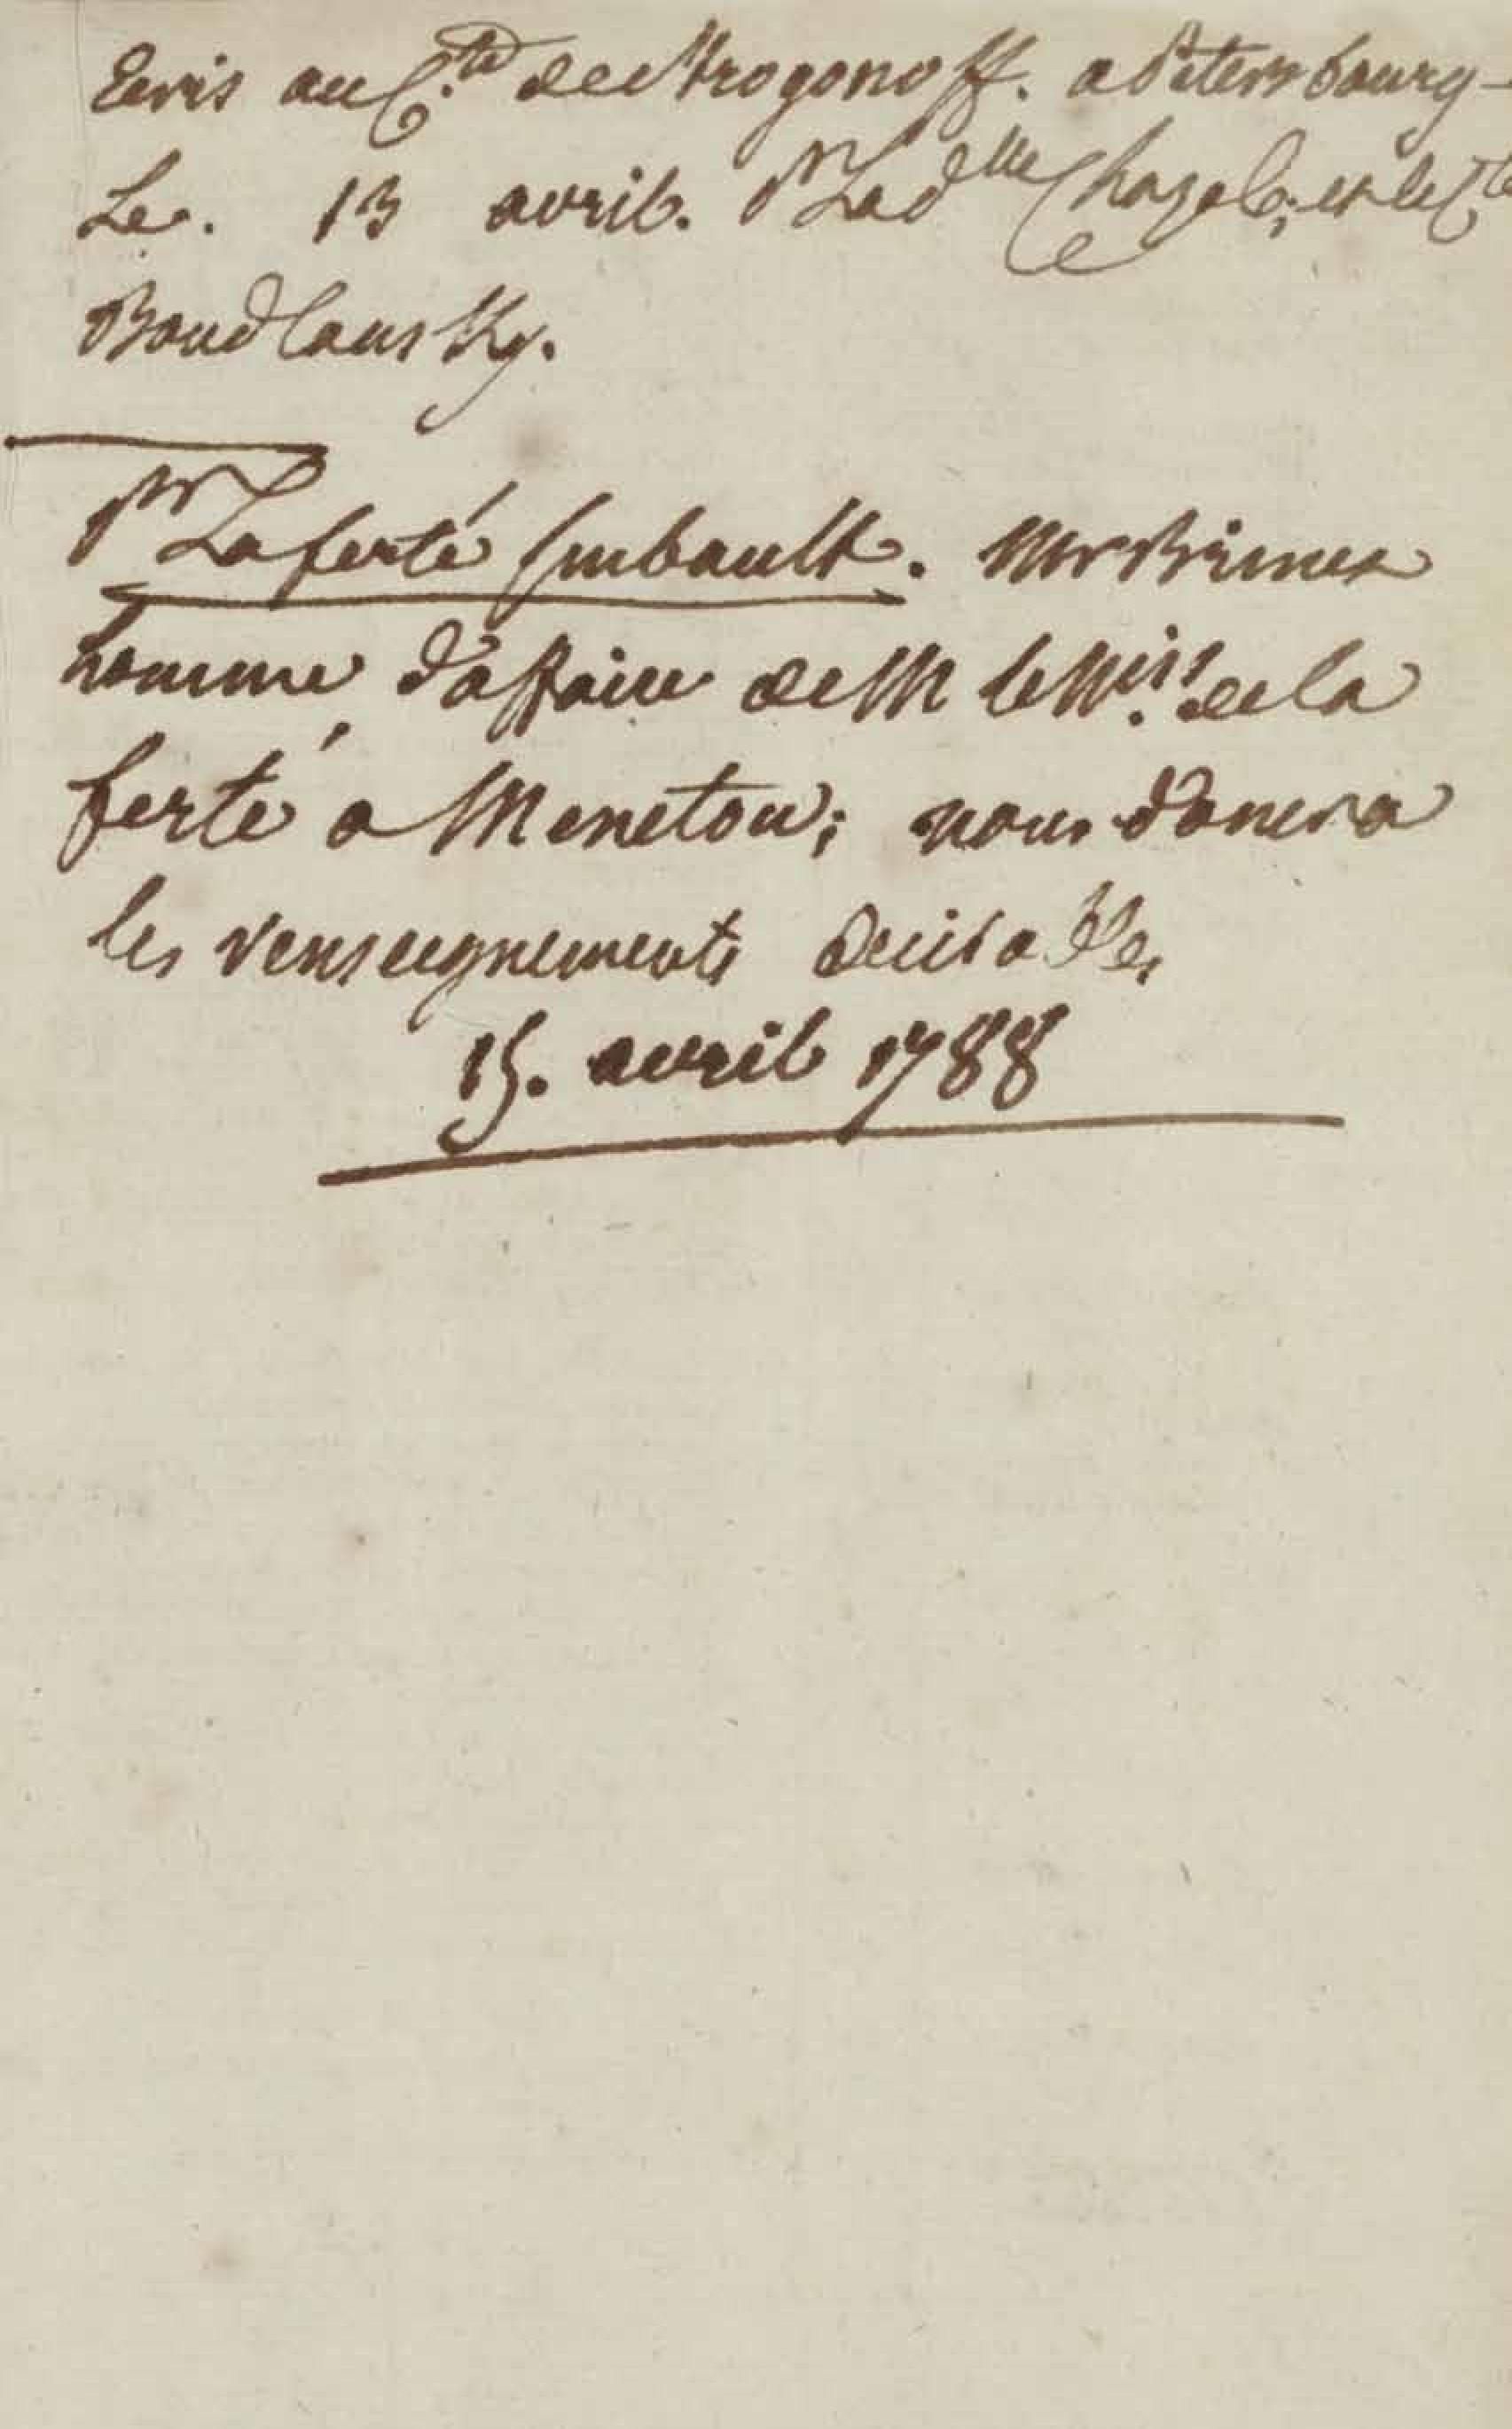 Ecris au C.te de Strogonoff. a Petersbourg -
Le. 13 avril. pr La dlle Chazel; et le Cte
Boudlansky.
pr La ferté Imbault. Mr
homme d'affaire de M le Mis. de la
ferté a Menetou; nous donera
les renseignements
15. avril 1788